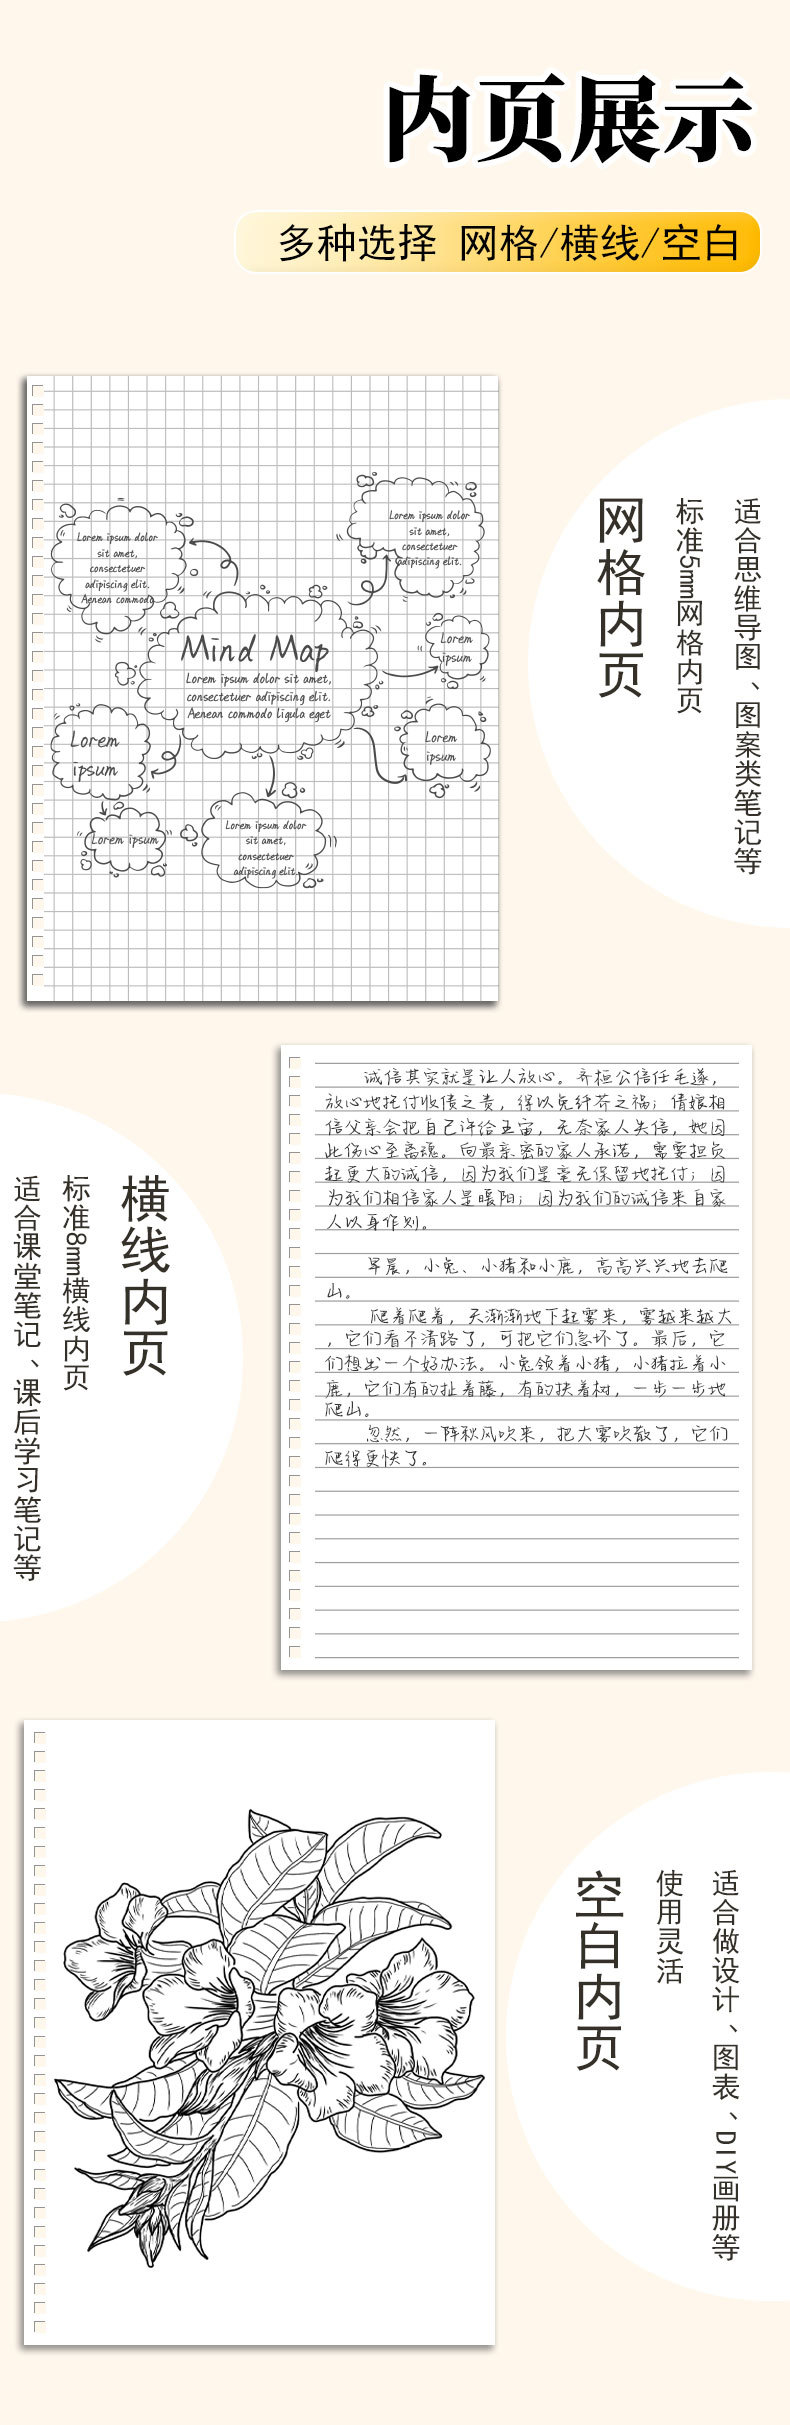 内页展示
多种选择 网格/横线/空白
Lorem ipsum dolor
sit amet,
consectetuer
adipiscing elit.
Aenean commodo
Lorem ipsum dolor
sit amet,
consectetuer
adipiscing elit.
Mind Map
Lorem ipsum dolor sit amet,
consectetuer adipiscing elit.
Aenean commodo ligula eget
Lorem
ipsum
Lorem
ipsum
Lorem
ipsum
Lorem ipsum
Lorem ipsum dolor
sit amet,
consectetuer
adipiscing elit.
网格内页
标准5mm网格内页
适合思维导图、图案类笔记等
横线内页
标准8mm横线内页
适合课堂笔记、课后学习笔记等
诚信其实就是让人放心。齐桓公信任毛遂，
放心地托付收债之责，得以免纤芥之祸；倩娘相
信父亲会把自己许给王宙，无奈家人失信，她因
此伤心至离魂。向最亲密的家人承诺，需要担负
起更大的诚信，因为我们是毫无保留地托付；因
为我们相信家人是暖阳；因为我们的诚信来自家
人以身作则。
早晨，小兔、小猪和小鹿，高高兴兴地去爬
山。
爬着爬着，天渐渐地下起雾来，雾越来越大
，它们看不清路了，可把它们急坏了。最后，它
们想出一个好办法。小兔领着小猪，小猪拉着小
鹿，它们有的扯着藤，有的扶着树，一步一步地
爬山。
忽然，一阵秋风吹来，把大雾吹散了，它们
爬得更快了。
空白内页
使用灵活
适合做设计、图表、DIY画册等